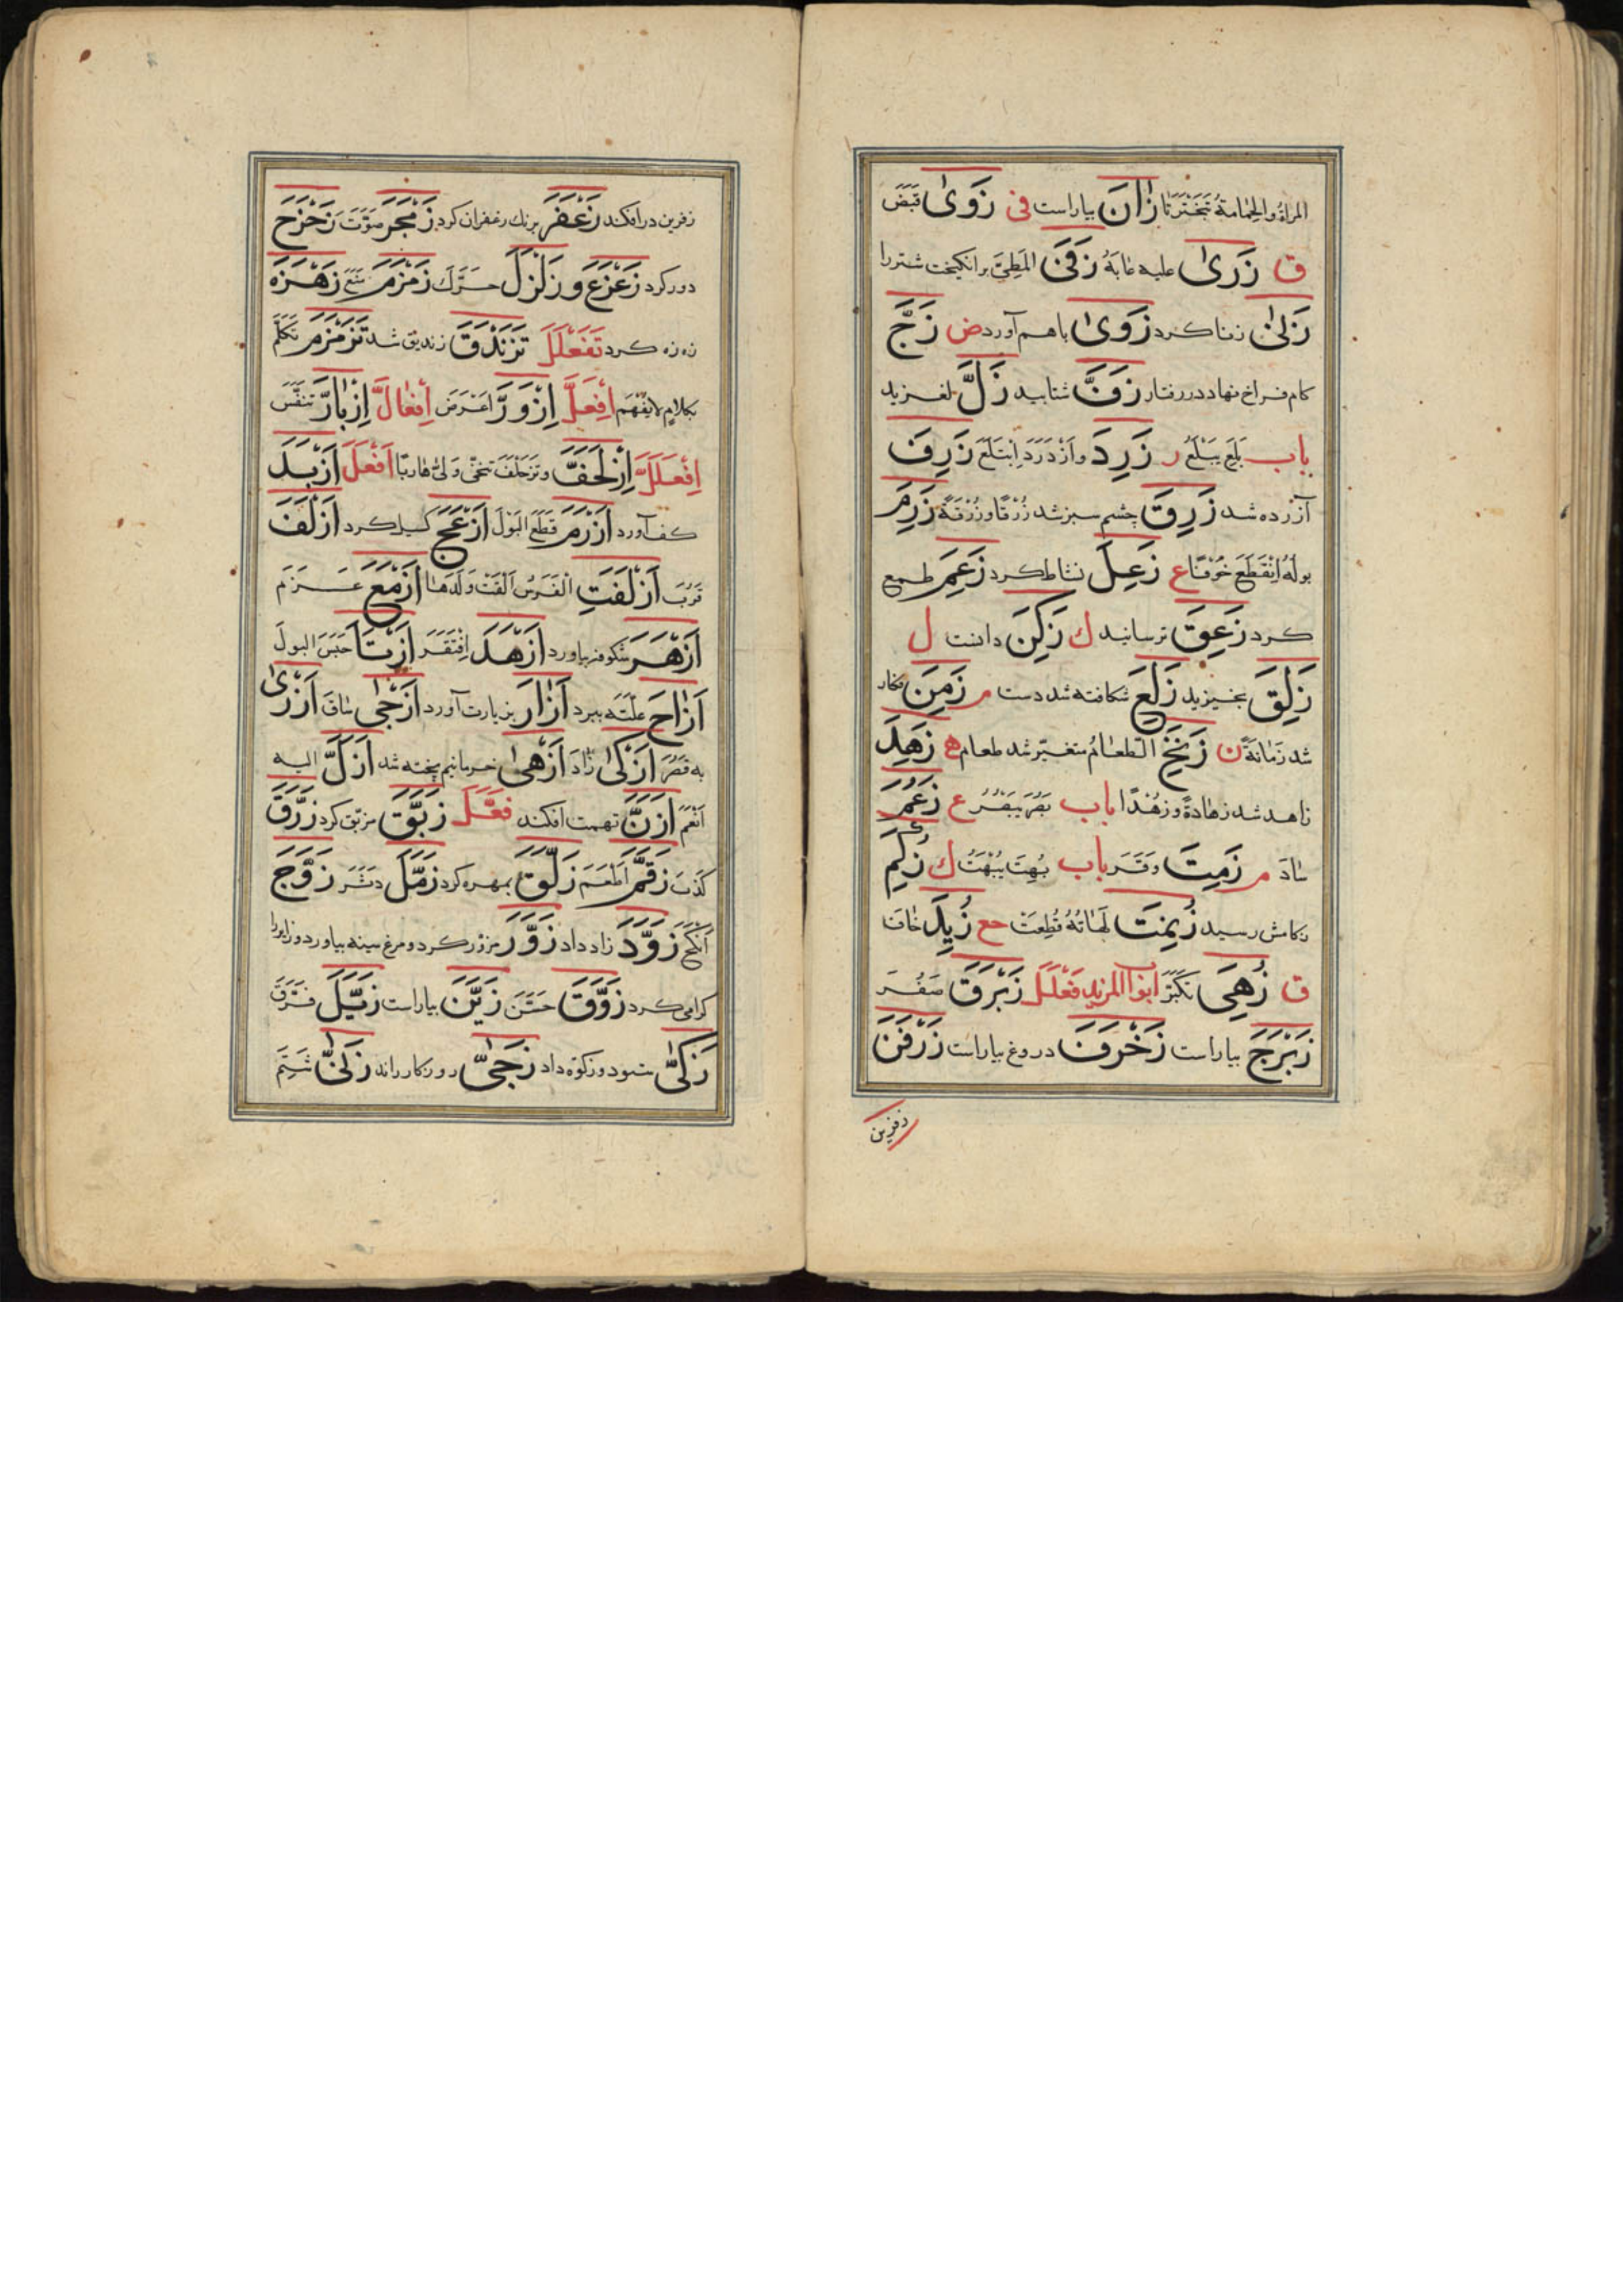 المراةُ والحمامةُ تَبَخْتَرَتا زَانَ بیاراست فی زَوَیٰ قَبَضَ
ق زَرَیٰ علیه عَابَهُ زَفَیٰ المَطِیَّ برانکیخت شتررا
زَنیٰ زناکرد زَوَیٰ باهم آورد ض زَجَّ
کام فراخ نهاد در رفتار زَفَّ شتابید زَلَّ لغزید
باب بَلِعَ یَبْلَعُ ر زَرِدَ وَازْدَرَدَ اِبْتَلَعَ زَرِفَ
آزرده شد زَرِقَ چشم سبز شد زُرْقًا وزُرْقَةً زَرِمَ
بولُهُ اِنْقَطَعَ خَوْفًا ع زَعِلَ نشاط کرد زَعِمَ طمع
کرد زَعِقَ ترسانید ك زَکِنَ دانست ل
زَلِقَ بخیزید زَلِعَ شکافته شد دست م زَمِنَ فکار
شد زَمَانَةً ن زَنِخَ الطعامُ متغیّر شد طعام ه زَهِدَ
زاهد شد زهادةً وزُهْدًا باب بَصُرَ یَبْصُرُ ع زَعُمَ
سَادَ م زَمِتَ وَقَرَ باب بُهِتَ یُبْهَتُ ك زُکِمَ
زکامش رسید زُیِنَتَ لَهَاتُهُ قُطِعَتْ حع زُیِلَ خَافَ
ق زُهِیَ تَکَبَّرَ ابواب المزید فَعْلَلَ زَبْرَقَ صَفَّرَ
زَبْرَجَ بیاراست زَخْرَفَ دروغ بیاراست زَرْفَنَ
زفرین
زفرین درافکند زَعْفَرَ برنك زعفران کرد زَمْجَرَ صَوَّتَ زَحْزَحَ
دورکرد زَعْزَعَ و زَلْزَلَ حَرَّكَ زَمْزَمَ زَهْزَهَ
زه زه کرد تَفَعْلَلَ تَزَنْدَقَ زندیق شد تَزَمْزَمَ تَکَلَّمَ
بکلامٍ لایُفْهَم اِفْعَلَّ اِزْوَرَّ اعرض اِفْعَالَّ اِزْبَارَّ تنفّش
اِفْعَلَلَّ اِزْلَحَفَّ وتزحلف تنحّی ولّی هاربًا اَفْعَلَ اَزْبَدَ
کف آورد اَزْرَمَ قَطَعَ البَوْلَ اَزْعَجَ کسیل کرد اَزْلَفَ
قَرَّبَ اَزْلَفَتِ الفَرَسُ اَلْقَتْ وَلَدَها اَزْمَعَ عَزَمَ
اَزْهَرَ شکوفه بیاورد اَزْهَدَ اِفْتَقَرَ اَزْنَأَ حَبَسَ البولَ
اَزَاحَ علّتَه ببرد اَزَارَ بزیارت آورد اَزْجَیٰ سَاقَ اَزْرَیٰ
به قَصَّرَ اَزْکَیٰ زَادَ اَزْهَیٰ خرما نیم پخته شد اَزَلَّ الیه
اَنْعَمَ اَزَنَّ تهمت افکند فَعَّلَ زَبَّقَ مزبّق کرد زَرَّقَ
کَذَبَ زَقَّمَ اَطْعَمَ زَلَّقَ بهره کرد زَمَّلَ دَثَّرَ زَوَّجَ
اَنْکَحَ زَوَّدَ زاد داد زَوَّرَ مزوّر کرد و مرغ سینه بیاورد و زایررا
کرامی کرد زَوَّقَ حَسَّنَ زَیَّنَ بیاراست زَیَّلَ فَرَّقَ
زَکَّیٰ ستود وزکوة داد زَجَّیٰ روزکار راند زَنَّیٰ شَتَمَ